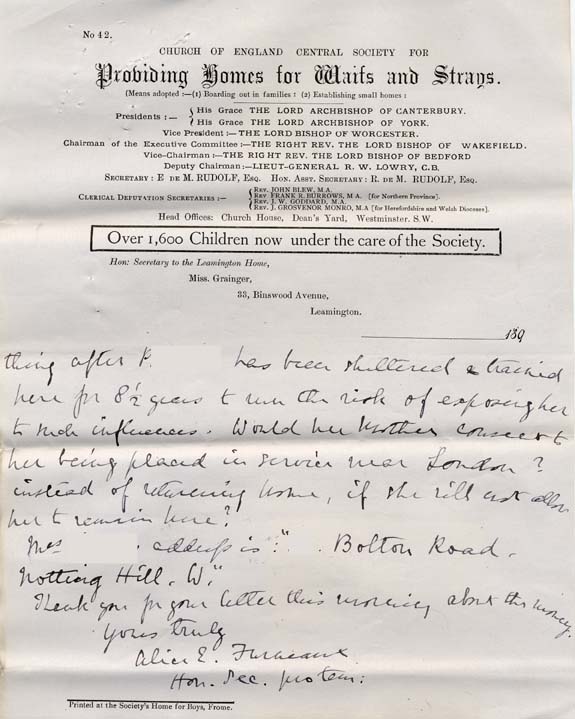 No 42.
CHURCH OF ENGLAND CENTRAL SOCIETY FOR
Providing Homes for Waifs and Strays.
(Means adopted :—(1) Boarding out in families : (2) Establishing small homes :
Presidents :— { His Grace THE LORD ARCHBISHOP OF CANTERBURY.
His Grace THE LORD ARCHBISHOP OF YORK.
Vice President :—THE LORD BISHOP OF WORCESTER.
Chairman of the Executive Committee :—THE RIGHT REV. THE LORD BISHOP OF WAKEFIELD.
Vice-Chairman :—THE RIGHT REV. THE LORD BISHOP OF BEDFORD
Deputy Chairman :—LIEUT-GENERAL R. W. LOWRY, C.B.
SECRETARY : E DE M. RUDOLF, ESQ. HON. ASST. SECRETARY : R. DE M. RUDOLF, ESQ.
CLERICAL DEPUTATION SECRETARIES :— { REV. JOHN BLEW, M.A.
REV FRANK R. BURROWS, M.A. [for Northern Province].
REV. J. W. GODDARD, M.A.
REV. J. GROSVENOR MONRO, M.A [for Herefordshire and Welsh Dioceses].
Head Offices: Church House, Dean's Yard, Westminster. S.W.
Over 1,600 Children now under the care of the Society.
Hon: Secretary to the Leamington Home,
Miss. Grainger,
33, Binswood Avenue,
Leamington.
189
thing after P. has been sheltered & trained
here for 8½ years to run the risk of exposing her
to such influences. Would her Mother consent to
her being placed in service near London?
instead of returning home, if she will not allow
her to remain here?
Mrs . address is " . Bolton Road.
Notting Hill. W."
Thank you for your letter this morning about the money.
Yours truly
Alice E. Furneaux
Hon. Sec. protem:
Printed at the Society's Home for Boys, Frome.